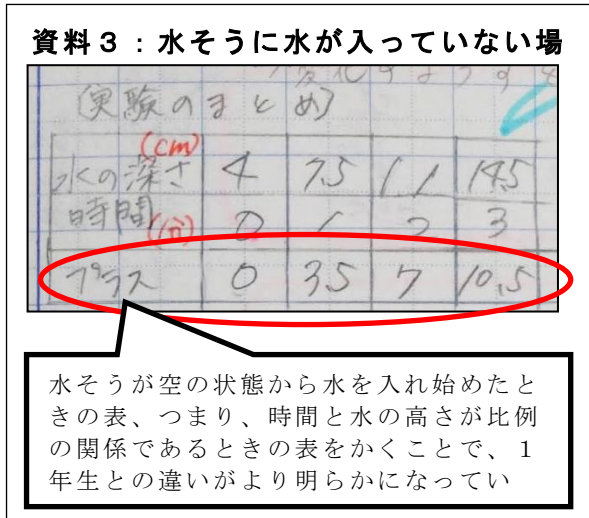 資料３：水そうに水が入っていない場
変化するようすを
(実験のまとめ)
(cm)
水の深さ 4 7.5 11 14.5
時間(分) 0 1 2 3
プラス 0 3.5 7 10.5
水そうが空の状態から水を入れ始めたと
きの表、つまり、時間と水の高さが比例
の関係であるときの表をかくことで、１
年生との違いがより明らかになってい